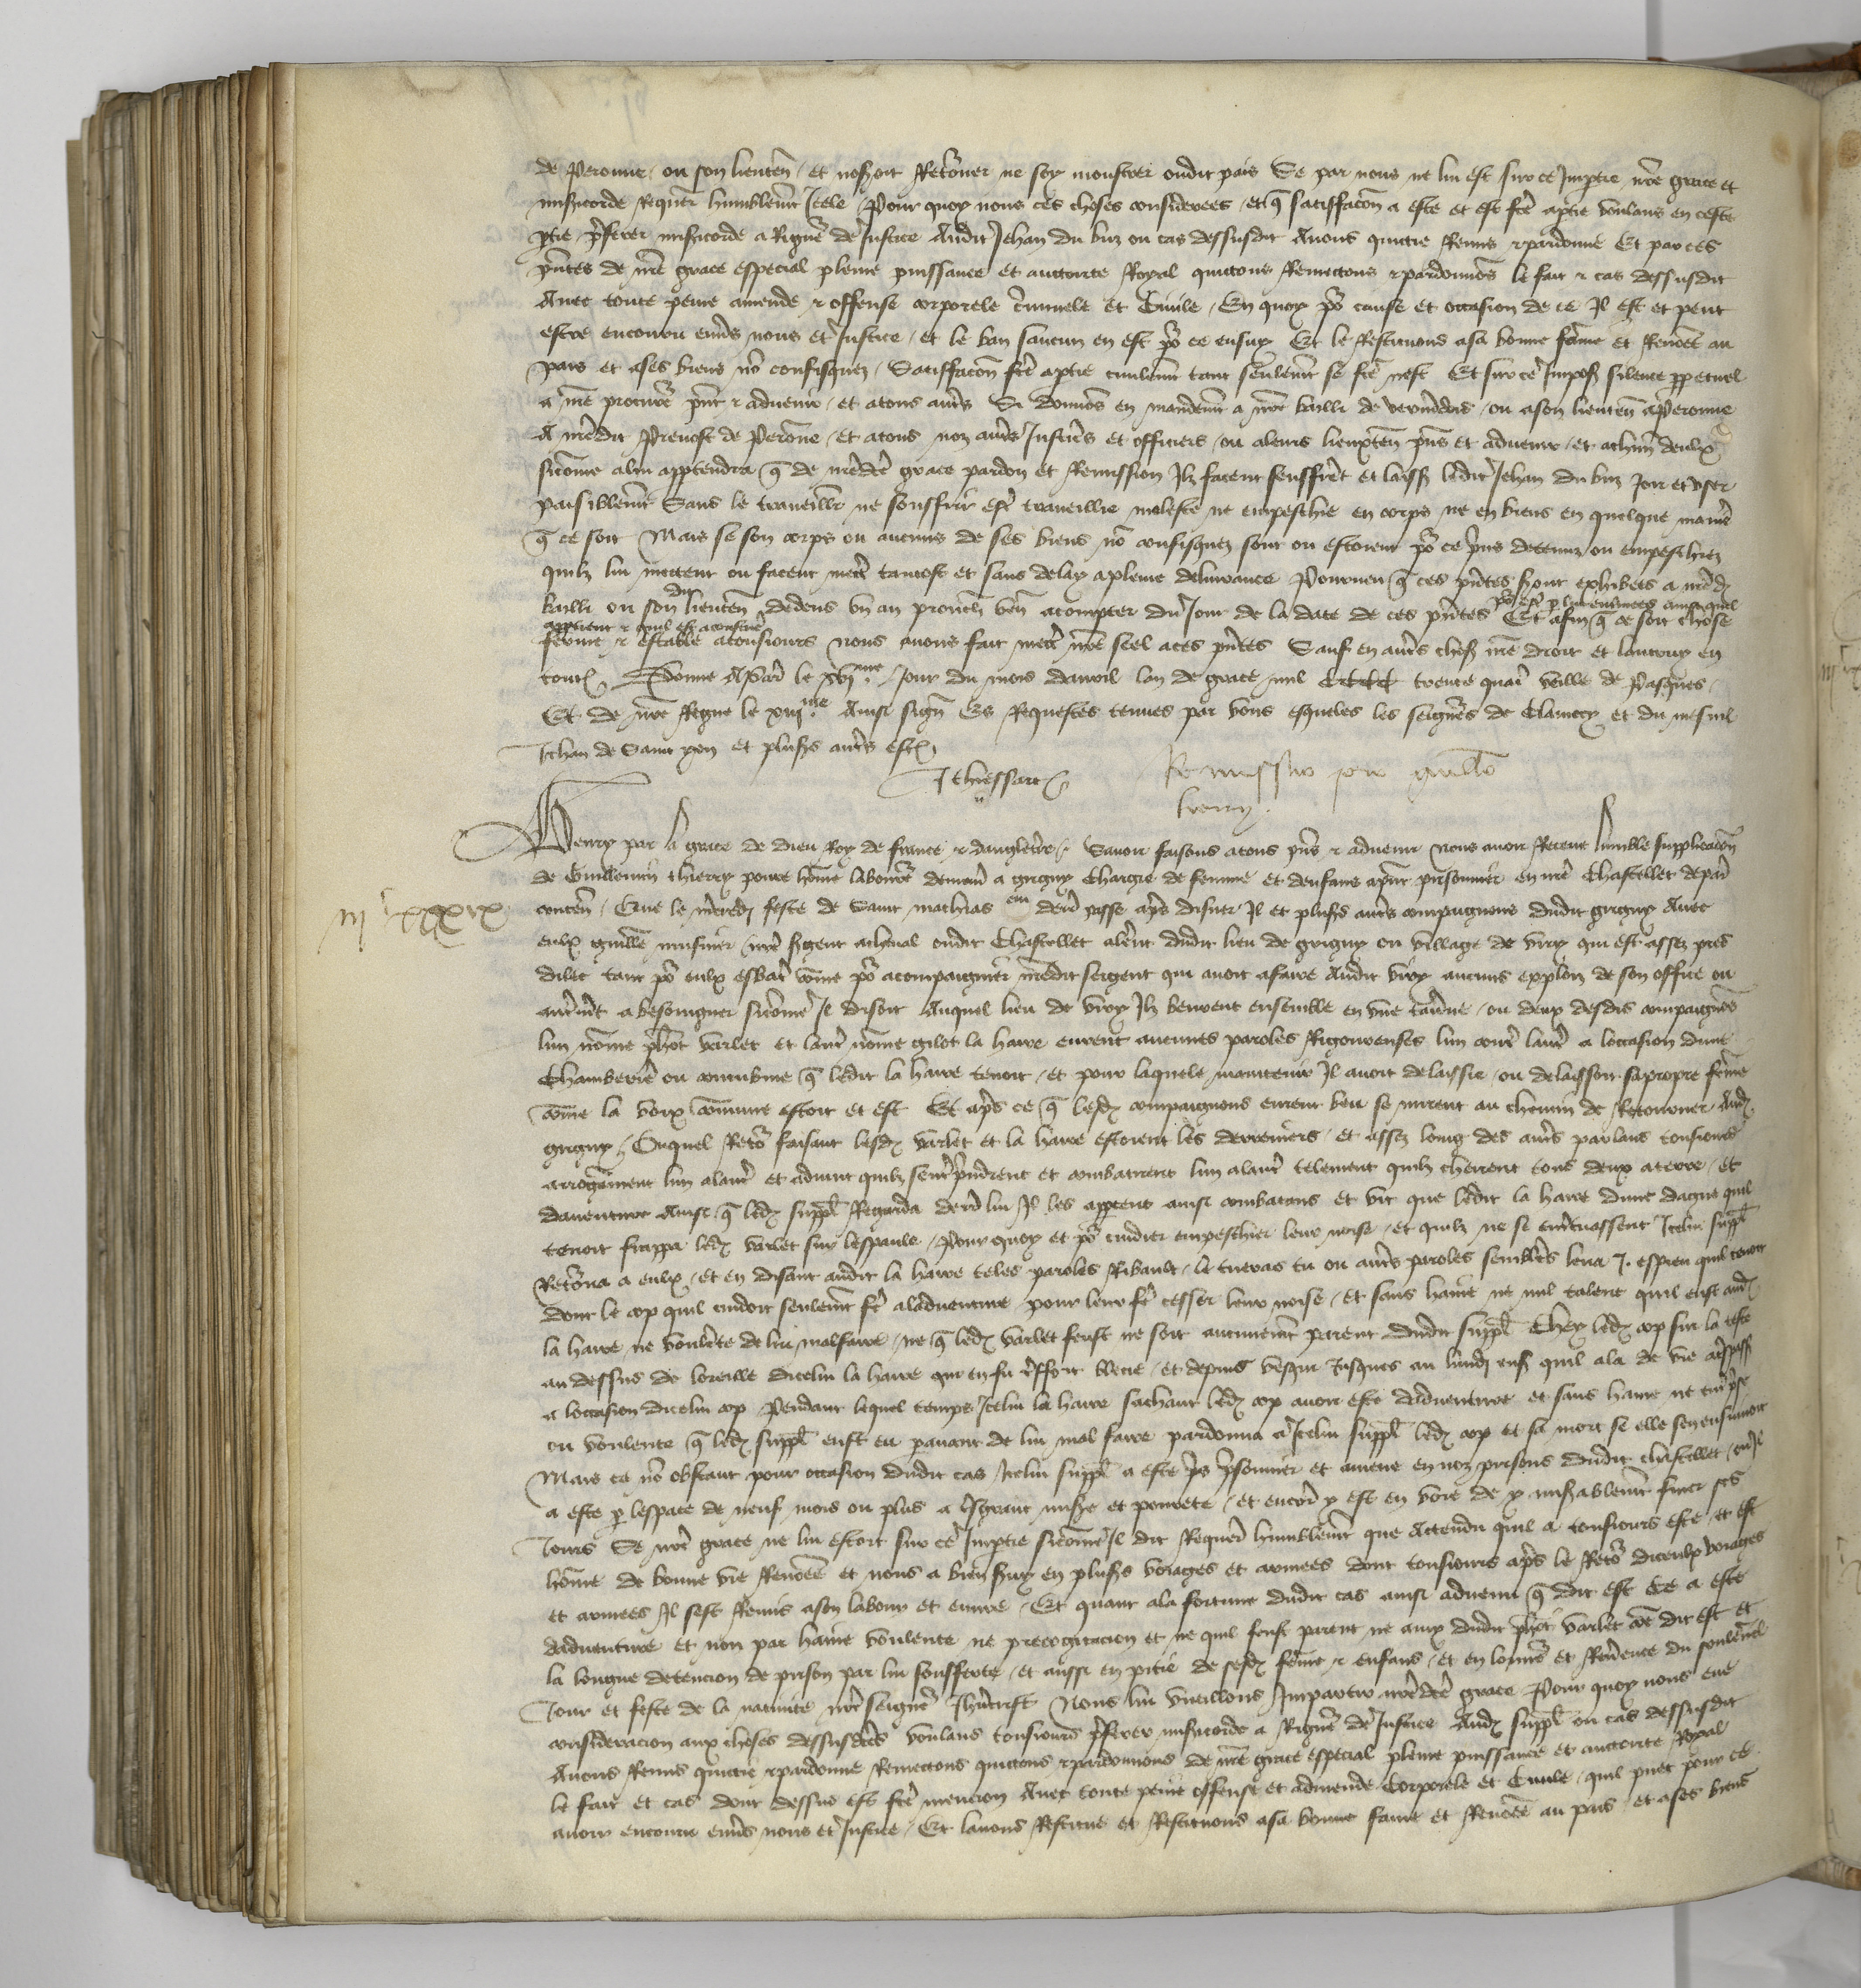 de Peronne ou son lieuten̄ et noseroit Ret'ourner ne soy monstrer oudit pais Se par nous ne lui est sur ce Imptie nr̄e grace et
misericorde Requer̄ humblem̄t Icele Pour quoy nous ces choses considerees et q̄ satisfacōn a este et est fc̄e aptie voulans en ceste
ptie p̄ferer misericorde a Rigueur de Justice Audit Jehan du buz ou cas dessusdit Auons quictie Remis & pardonne Et par ces
pn̄tes de nr̄e grace especial pleine puissance et auctorite Royal quictons Remectons & pardonnōs le fait & cas dessusdit
Auec toute peine amende & offense corporele c̄riminele et Ciuile En quoy po' cause et occasion de ce Il est et peut
estre encouru enūs nous et Justice et le ban saucun en est po' ce ensuy Et le Restituons asa bonne fāme et Renōēe au
pais et ases biens nō confisquez Satisfacōn fc̄e aptie ciuilem̄t tant seulem̄t se fc̄e nest Et sur ce Imposōs silence ppetuel
a nr̄e procureur pn̄t & aduenir et atous aut's Si donnōs en mandem̄t a nr̄e bailli de vermēdois ou ason lieuten̄ aPeronne
A nr̄edit Preuost de Perōne et atous noz aut's Justic's et officiers ou aleurs lieuxten̄ pn̄s et aduenir et achūn deulx
sicōme alui apptendra q̄ de nr̄edc̄e grace pardon et Remission Ilz facent seuffrēt et laissēt ledit Jehan du buz Joir et vser
paisiblem̄t Sans le trauaillier ne souffrir estre trauaillie moleste ne empeschie en corps ne en biens en quelque manie'
q̄ ce soit Mais se son corps ou aucuns de ses biens nō confisquez sont ou estoient po' ce pris detenuz ou empeschiez
quilz lui mectent ou facent mectr̄ tantost et sans delay apleine deliurance Pourueu q̄ ces pn̄tes seront exhibees a nr̄ed'
bailli ou son dit lieuten̄ dedens vn an prouch̄ ven̄ acompter du Jour de la date de ces pn̄tes po' est' p lui enterinees ainsi quil
apptient & quil est acoustume Et afin q̄ ce soit chose
ferme & estable atousiours nous auons fait mectr̄ nr̄e seel aces pn̄tes Sauf en aut's chos' nr̄e droit et lautruy en
tout' Donne APar̄ le xvj.me Jour du mois dauril lan de grace mil CCCC trente quatr̄ veille de Pasques
Et de nr̄e Regne le xiij.me Ainsi sign̄ Es Requestes tenues par vous esqueles les seign̄rs de Clamecy et du mesnil
Jehan de Saint yon et plus's aut's est'
J thiessart
Remissio pro guill̄o
thierry.
iijC xxxix
Henry par la grace de dieu Roy de france & dangleter̄e Sauoir faisons atous pn̄s & aduenir Nous auoir Receue lumble supplicacōn
de Guillemin thierry poure hōme laboure' demour̄ a grigny Chargie de femme et denfans apn̄t prisonnier en nr̄e Chastellet de par̄
conten̄ Que le mercredj feste de Saint mathias en derr̄ passe ap's disner Il et plus's aut's compaignons dudit grigny Auec
eulx guill̄e musnier nr̄e sergent acheual oudit Chastellet aler̄nt dudit lieu de grigny ou village de viry qui est assez pres
dilec tant po' eulx esbatr̄ cōme po' acompaignier nr̄edit sergent qui auoit afaire Audit viry aucuns exploiz de son office ou
autrem̄t a besoingner sicōme Il disoit Auquel lieu de viry Ilz beurent ensemble en vne tauerne ou deux desdis compaignōs
lun nōme p̄hot varlet et lautr̄ nōme gilot la haire eurent aucunes paroles Rigoureuses lun contr̄ lautr̄ a loccasion dune
Chamberier̄ ou concubine q̄ ledit la haire tenoit et pour laquele maintenir Il auoit delaissie ou delaissoit sapropre fēme
cōme la voix cōmune estoit et est Et ap's ce q̄ lesd' compaignons eurent beu se mirent au chemin de Retourner Aud'
grigny Ouquel Reto' faisant lesd' varlet et la haire estoient les derreniers et assez loing des aut's parlans tousiours
arrogāment lun alautr̄ et aduint quilz sentr̄prindrent et combatirent lun alautr̄ telement quilz cheirent tous deux aterre et
dauenture Ainsi q̄ led' suppl̄ Regarda derr̄ lui Il les appercut ainsi combatans et vit que ledit la haire dune dague quil
tenoit frappa led' varlet sur lespaule Pour quoy et po' cuidier empeschier leur noise et quilz ne se entretuassent Icelui suppl̄
Reto'na a eulx et en disant audit la haire teles paroles Ribault le tueras tu ou aut's paroles semblab's leua .j. espieu quil tenoit
dont le cop quil cuidoit seulem̄t fer̄ aladuenture pour leur fer̄ cesser leur noise et sans haine ne nul talent quil eust aud'
la haire ne voulente de lui malfaire ne q̄ led' varlet feust ne soit aucunem̄t parent dudit suppl̄ Chey led' cop sur la teste
au dessus de loreille dicelui la haire qui en fu treffort blecie et depuis vesqui Jusques au lundj ens' quil ala de vie atrespass'
a loccasion dicelui cop Pendant lequel temps Icelui la haire sachant led' cop auoir este daduenture et sans haine ne entreprise
ou voulente q̄ led' suppl̄ eust eu parauant de lui mal faire pardonna a Icelui suppl̄ led' cop et sa mort se elle sen ensuiuoit
Mais ce nō obstant pour occasion dudit cas Icelui suppl̄ a este pris prisonnier et amene en noz prisons dudit chastellet ou Il
a este p lespace de neuf mois ou plus a tresgrant misere et pourete et encor̄ y est en voie de y miserablem̄t finer ses
Jours Se nr̄e grace ne lui estoit sur ce Imptie sicōme Il dit Requer̄ humblem̄t que Attendu quil a tousiours este et est
hōme de bonne vie Renōēe et nous a bien seruy en plus's voiages et armees dont tousiours ap's le Reto' diceulx voiages
et armees Il sest Remis ason labour et euure Et quant ala fortune dudit cas ainsi aduenu q̄ dit est Ce a este
daduenture et non par haine voulente ne precogitacion et ne quil feust parent ne amy dudit p̄hot varlet cōe dit est et
la longue detencion de prison par lui soufferte et aussi en pitie de sesd' fēme & enfans et en lonneur et Reuerence du soulennel
Jour et feste de la natiuite nr̄e seigneur Jhūcrist Nous lui vueillons Impartir nr̄edc̄e grace Pour quoy nous eue
consideracion aux choses dessusdc̄es voulans tousiours p̄ferer misericorde a Rigueur de Justice Aud' suppl̄ ou cas dessusdit
Auons Remis quictie & pardonne Remectons quictons & pardonnons de nr̄e grace especial pleine puissance et auctorite Royal
le fait et cas dont dessus est fc̄e mencion Auec toute peine offense et admende Corporele et Ciuile quil puet pour ce
auoir encouru enūs nous et Justice Et lauons Restitue et Restituons asa bonne fame et Renōēe au pais et ases biens